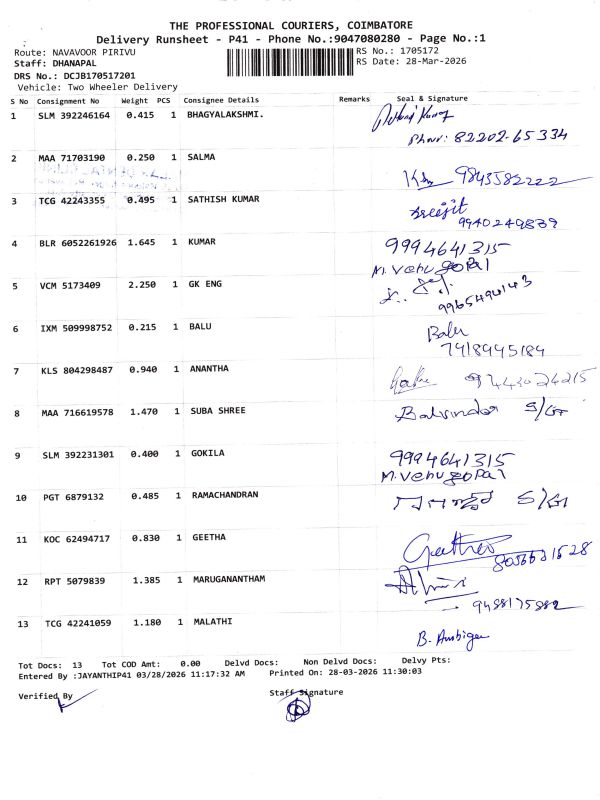 THE PROFESSIONAL COURIERS, COIMBATORE
Delivery Runsheet - P41 - Phone No.:9047080280 - Page No.:1
Route: NAVAVOOR PIRIVU RS No.: 1705172
Staff: DHANAPAL RS Date: 28-Mar-2026
DRS No.: DCJB170517201
Vehicle: Two Wheeler Delivery
S No Consignment No Weight PCS Consignee Details Remarks Seal & Signature
1 SLM 392246164 0.415 1 BHAGYALAKSHMI.
82202-65334
2 MAA 71703190 0.250 1 SALMA
9843582222
3 TCG 42243355 0.495 1 SATHISH KUMAR
Sreejit
9940249839
4 BLR 6052261926 1.645 1 KUMAR 9994641315
M. Venu gopal
5 VCM 5173409 2.250 1 GK ENG
6 IXM 509998752 0.215 1 BALU Balu
7418945184
7 KLS 804298487 0.940 1 ANANTHA
8 MAA 716619578 1.470 1 SUBA SHREE Balvinder
9 SLM 392231301 0.400 1 GOKILA 9994641315
M. Venu gopal
10 PGT 6879132 0.485 1 RAMACHANDRAN
11 KOC 62494717 0.830 1 GEETHA
12 RPT 5079839 1.385 1 MARUGANANTHAM
13 TCG 42241059 1.180 1 MALATHI
Tot Docs: 13 Tot COD Amt: 0.00 Delvd Docs: Non Delvd Docs: Delvy Pts:
Entered By :JAYANTHIP41 03/28/2026 11:17:32 AM Printed On: 28-03-2026 11:30:03
Verified By Staff Signature